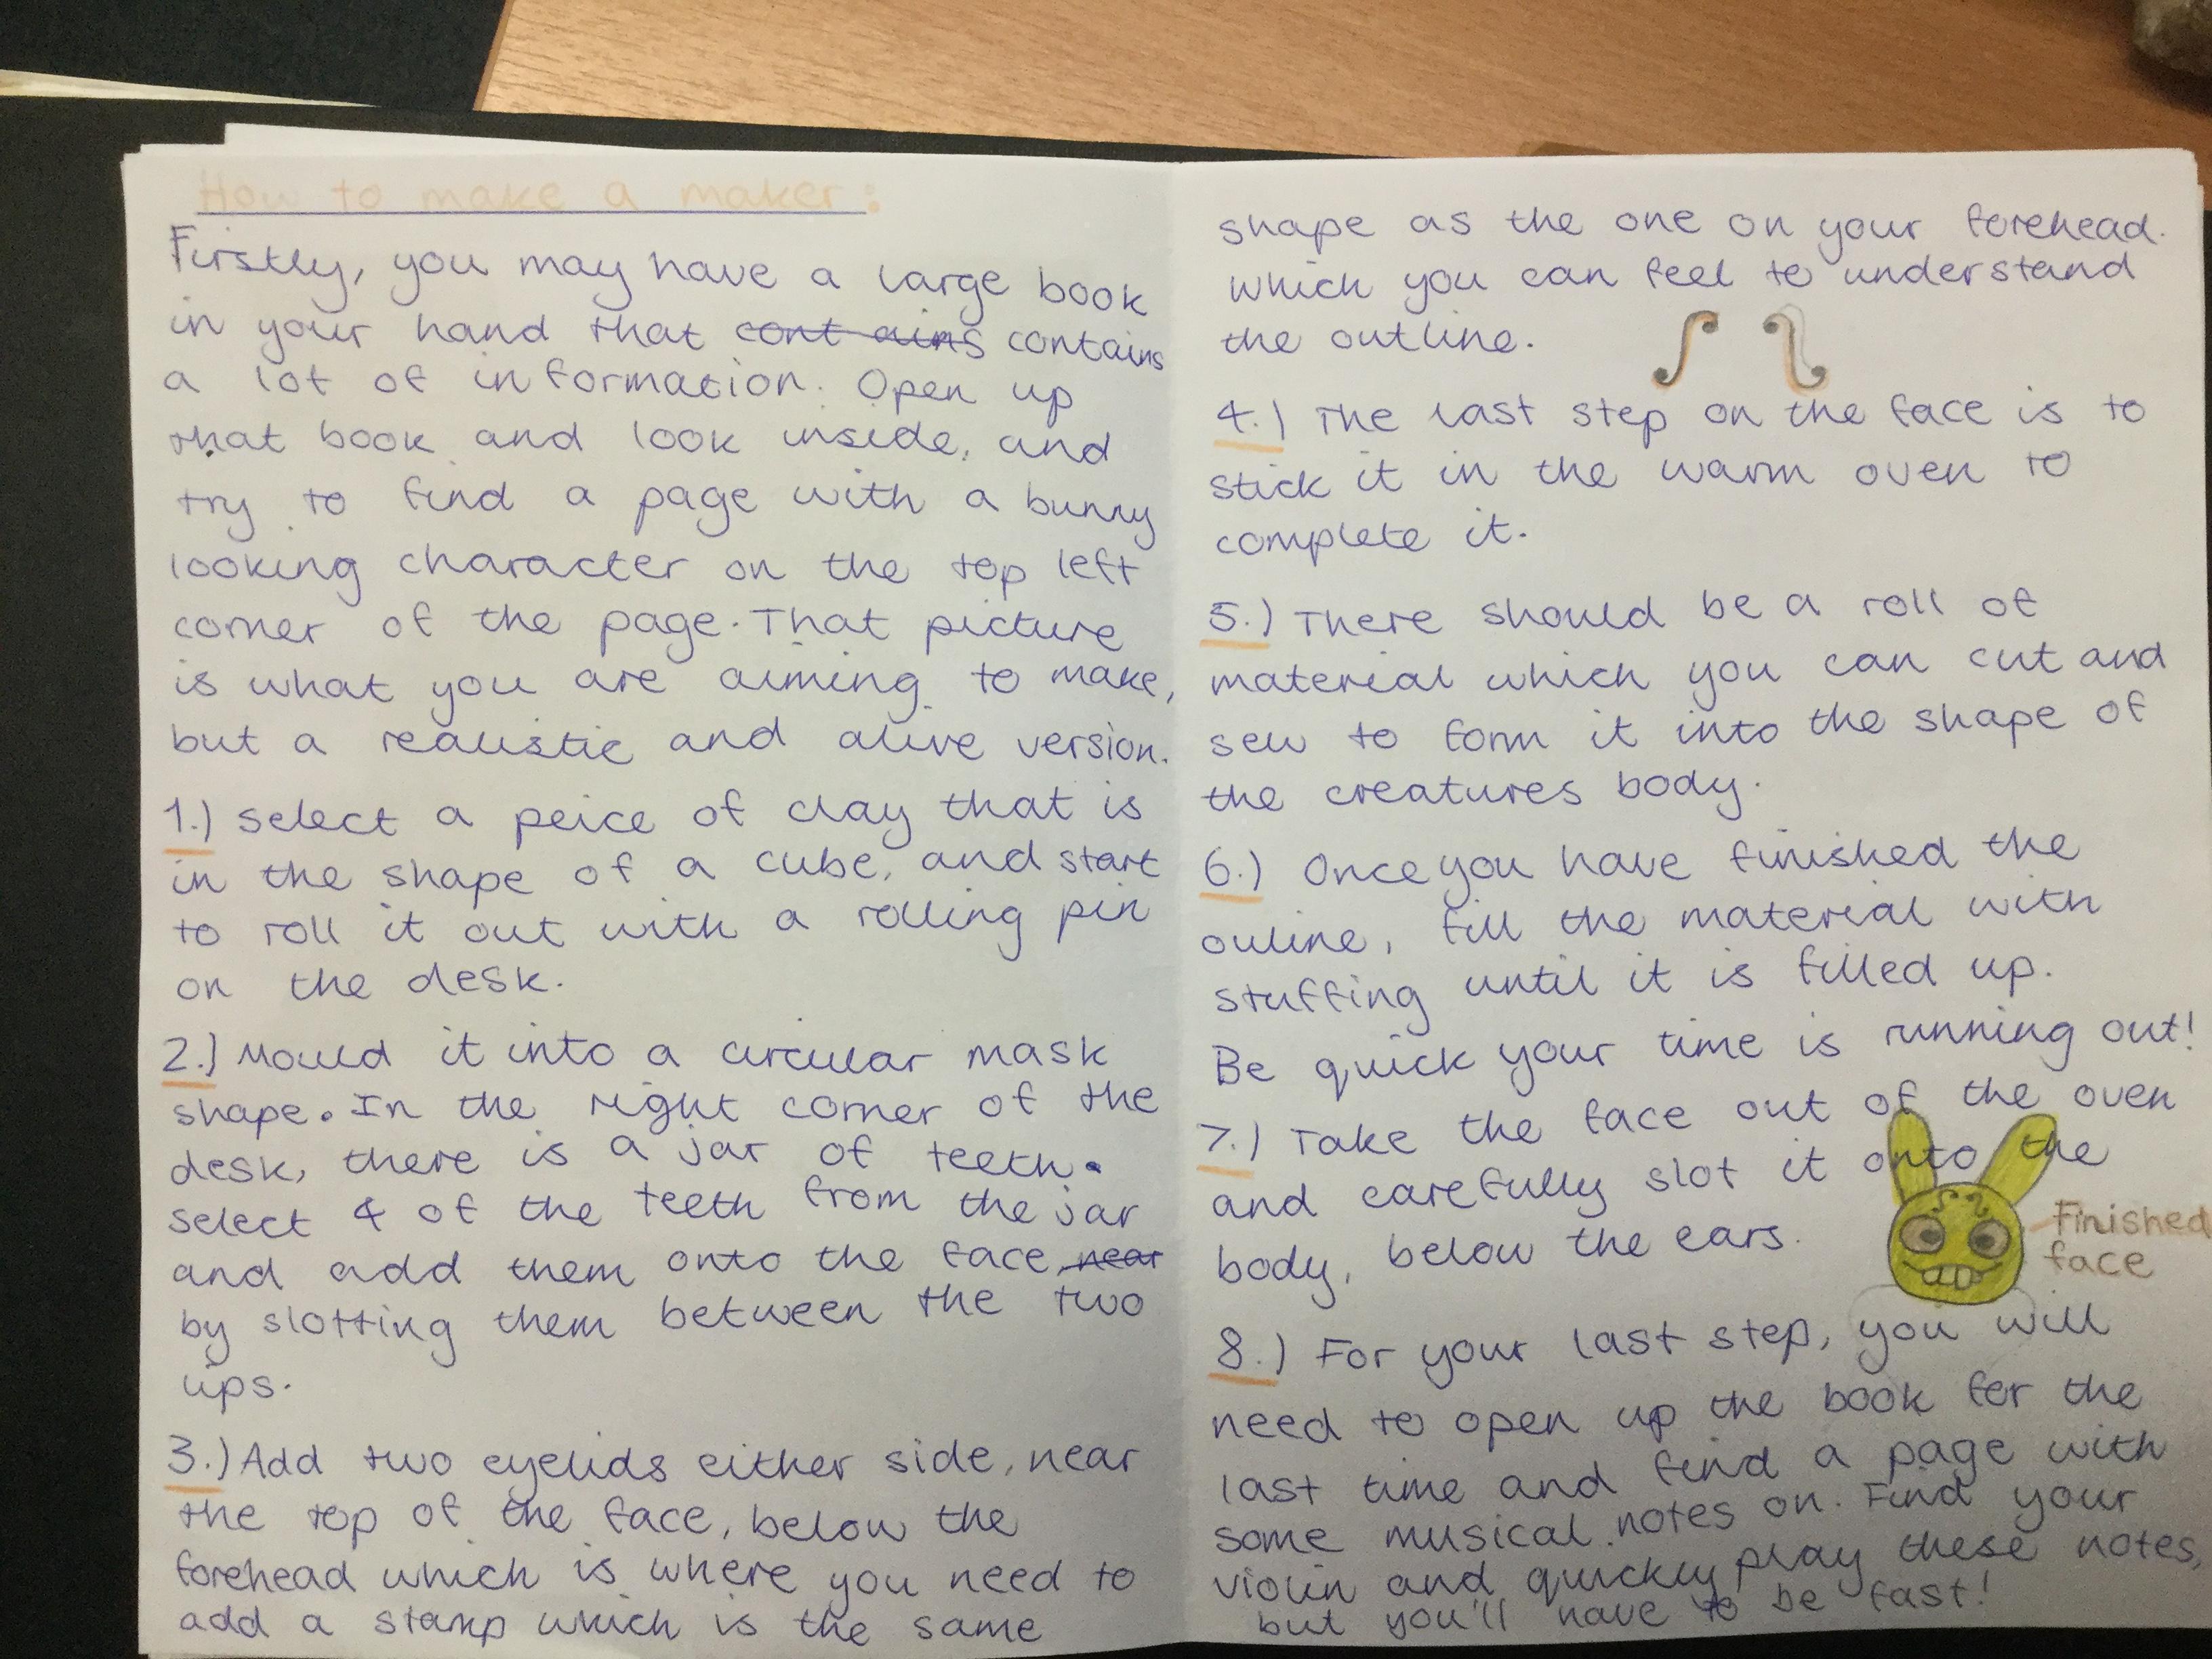 How to make a maker:
Firstly, you may have a large book
in your hand that cont ains contains
a lot of information. Open up
that book and look inside, and
try to find a page with a bunny
looking character on the top left
corner of the page. That picture
is what you are aiming to make,
but a realistic and alive version.
1.) select a peice of clay that is
in the shape of a cube, and start
to roll it out with a rolling pin
on the desk.
2.) Mould it into a circular mask
shape. In the right corner of the
desk, there is a jar of teeth.
select 4 of the teeth from the jar
and add them onto the face, near
by slotting them between the two
lips.
3.) Add two eyelids either side, near
the top of the face, below the
forehead which is where you need to
add a stamp which is the same
shape as the one on your forehead.
which you can feel to understand
the outline.
4.) The last step on the face is to
stick it in the warm oven to
complete it.
5.) There should be a roll of
material which you can cut and
sew to form it into the shape of
the creatures body.
6.) Once you have finished the
ouline, fill the material with
stuffing until it is filled up.
Be quick your time is running out!
7.) Take the face out of the oven
and carefully slot it onto the
body, below the ears.
Finished
face
8.) For your last step, you will
need to open up the book for the
last time and find a page with
some musical notes on. Find your
violin and quickly play these notes,
but you'll have to be fast!